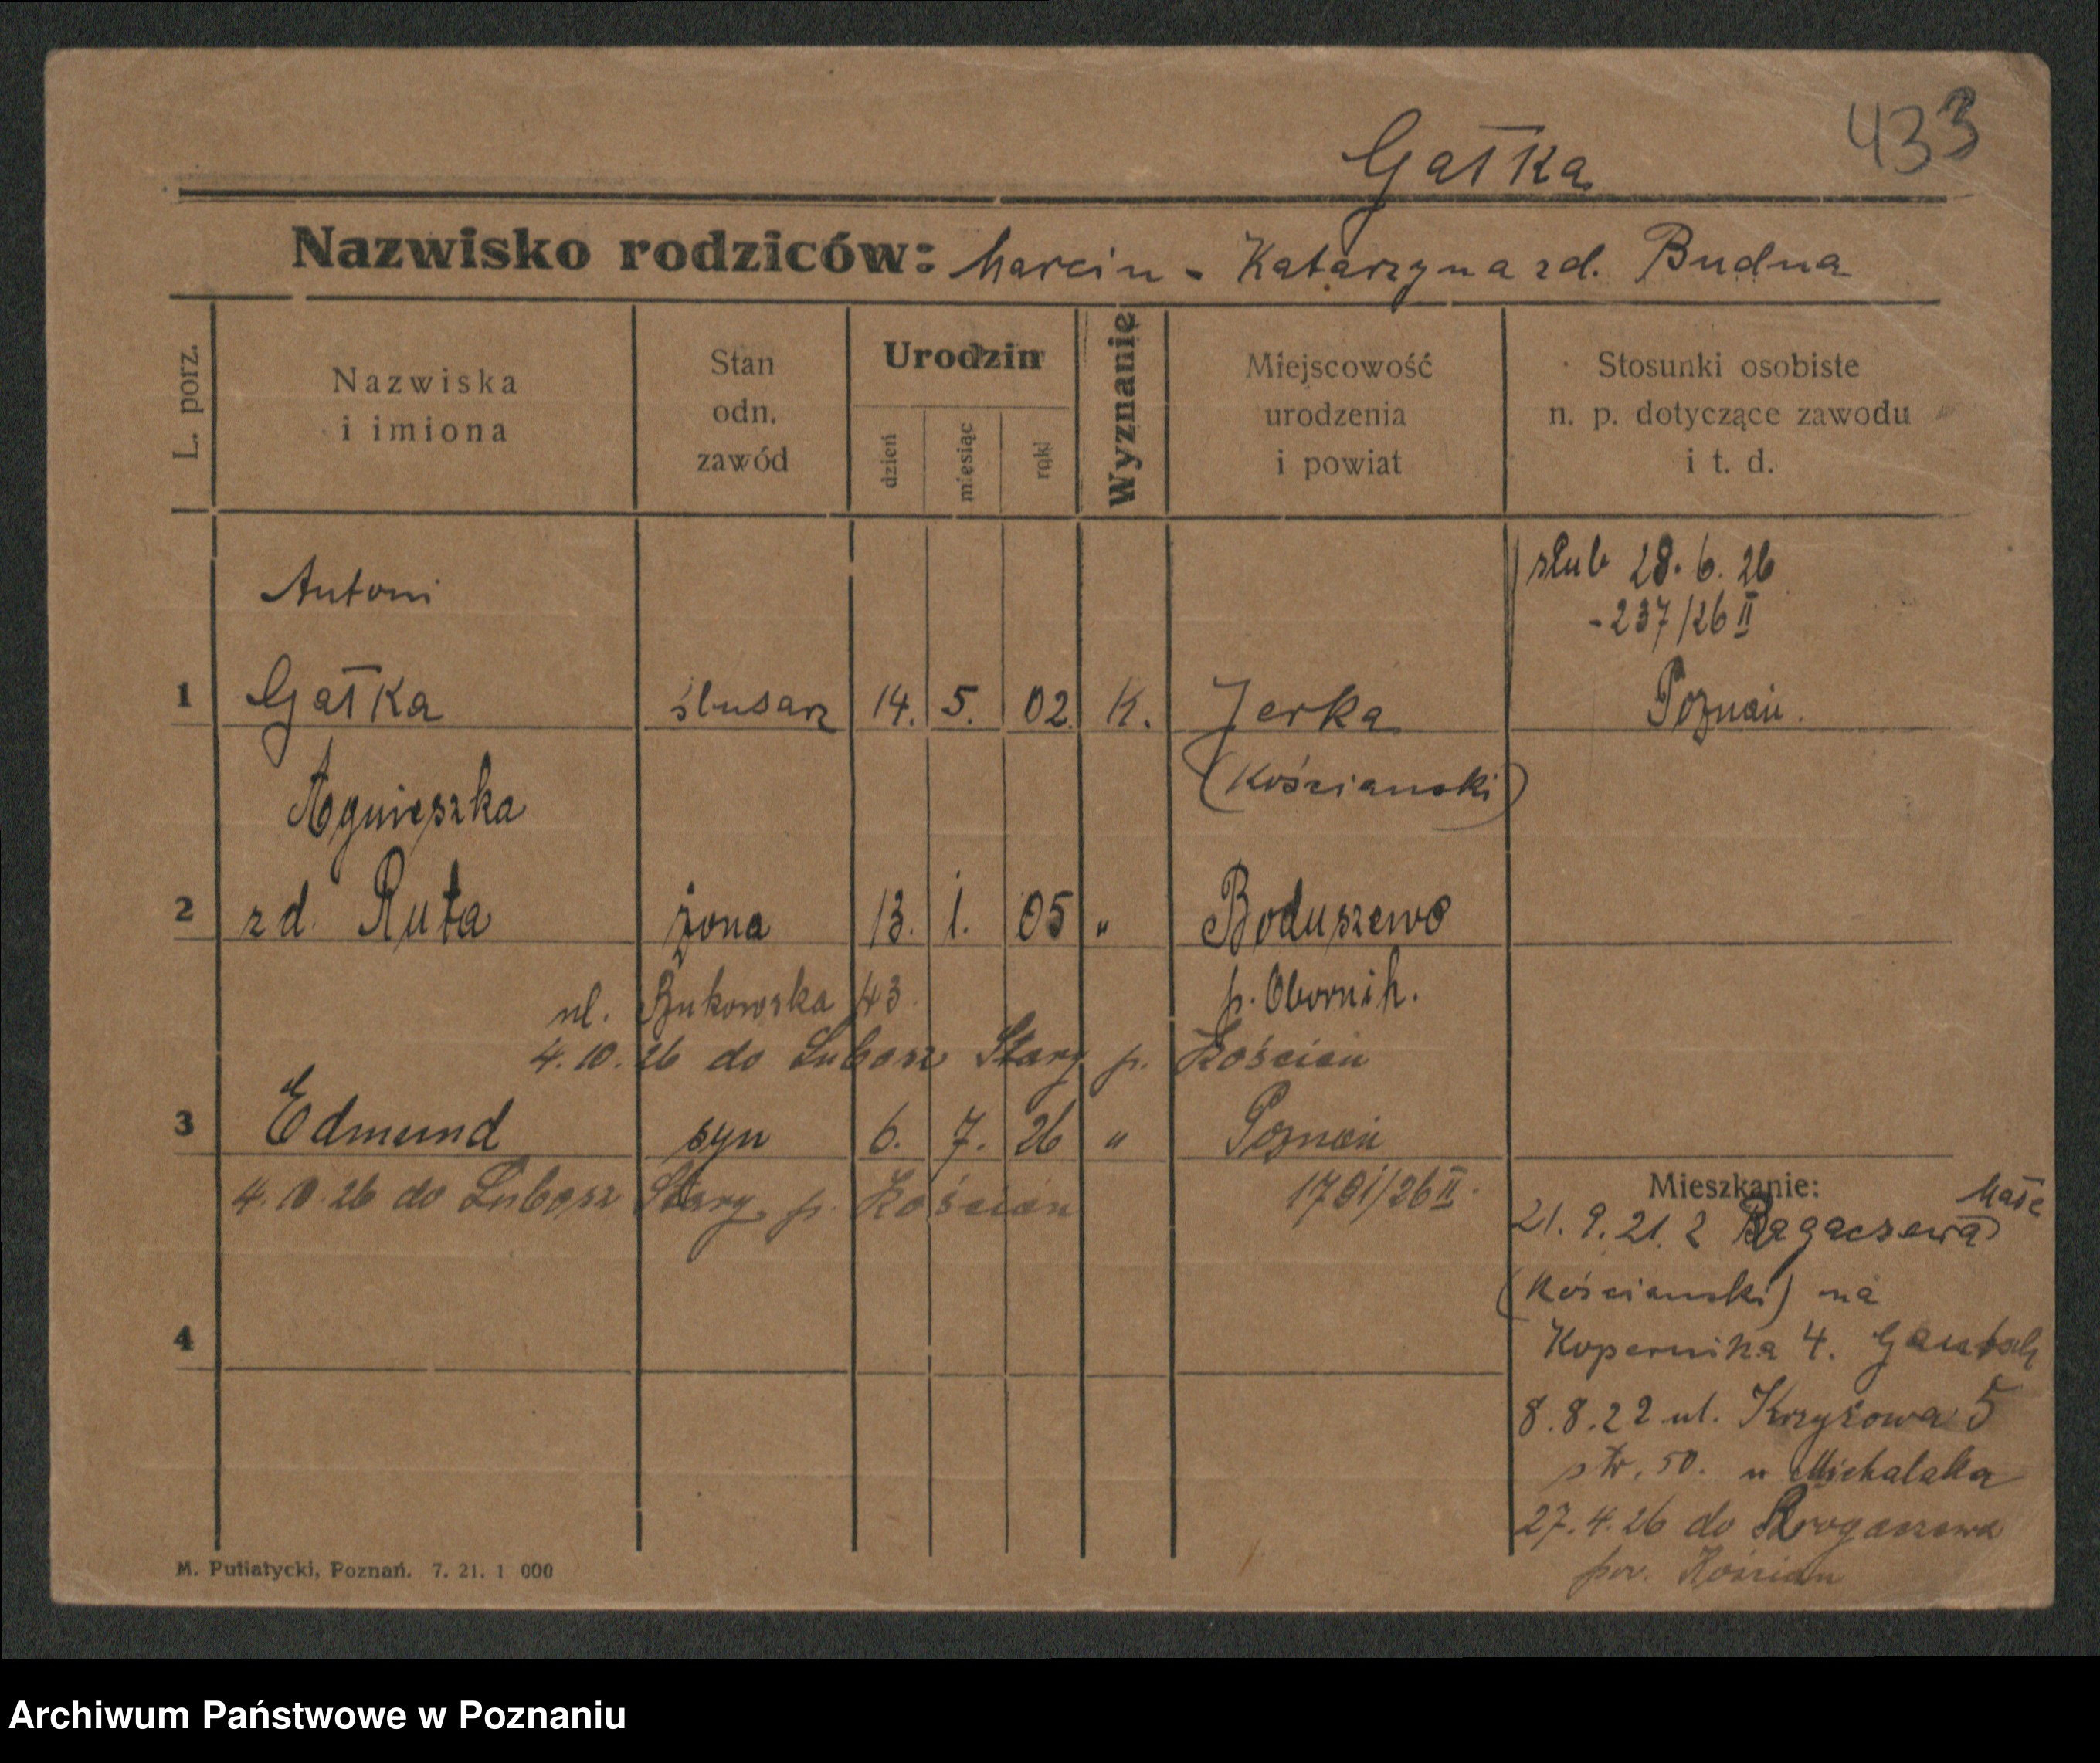 433
Gałka
Nazwisko rodziców: Marcin - Katarzyna zd. Budna
L. porz.
Nazwiska
i imiona
Stan
odn.
zawód
Urodzin
dzień
miesiąc
rok
Wyznanie
Miejscowość
urodzenia
i powiat
Stosunki osobiste
n. p. dotyczące zawodu
i t. d.
ślub 28. 6. 26
- 237/26 II
Poznań.
Antoni
1 Gałka ślusarz 14. 5. 02. K. Jerka
(Kościański)
Agnieszka
2 zd. Ruta żona 13. 1. 05 " Boduszewo
p. Obornik.
ul. Bukowska 43
4. 10. 26 do Lubosz Stary p. Kościan
3 Edmund syn 6. 7. 26 " Poznań
1791/26 II.
4. 10. 26 do Lubosz Stary p. Kościan
4
Mieszkanie:
21. 9. 21. z Rogaczewa Małe
(Kościański) na
Kopernika 4.
8. 8. 22 ul. Krzyżowa 5
ptr. 50. u Michalaka
27. 4. 26 do Rogaczewa
pow. Kościan
M. Putiatycki, Poznań. 7. 21. 1 000
Archiwum Państwowe w Poznaniu